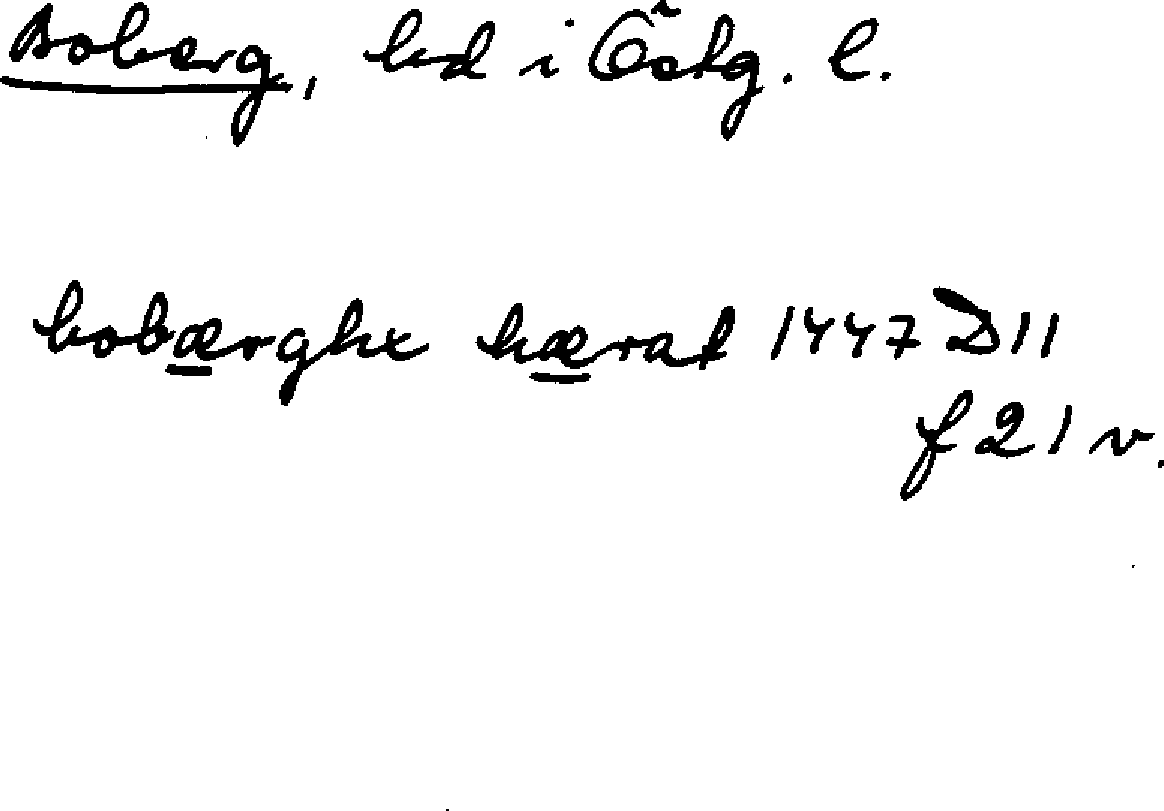 Boberg, hd i Östg. l.
bobærghx hærat 1447 D11
f 21 v.